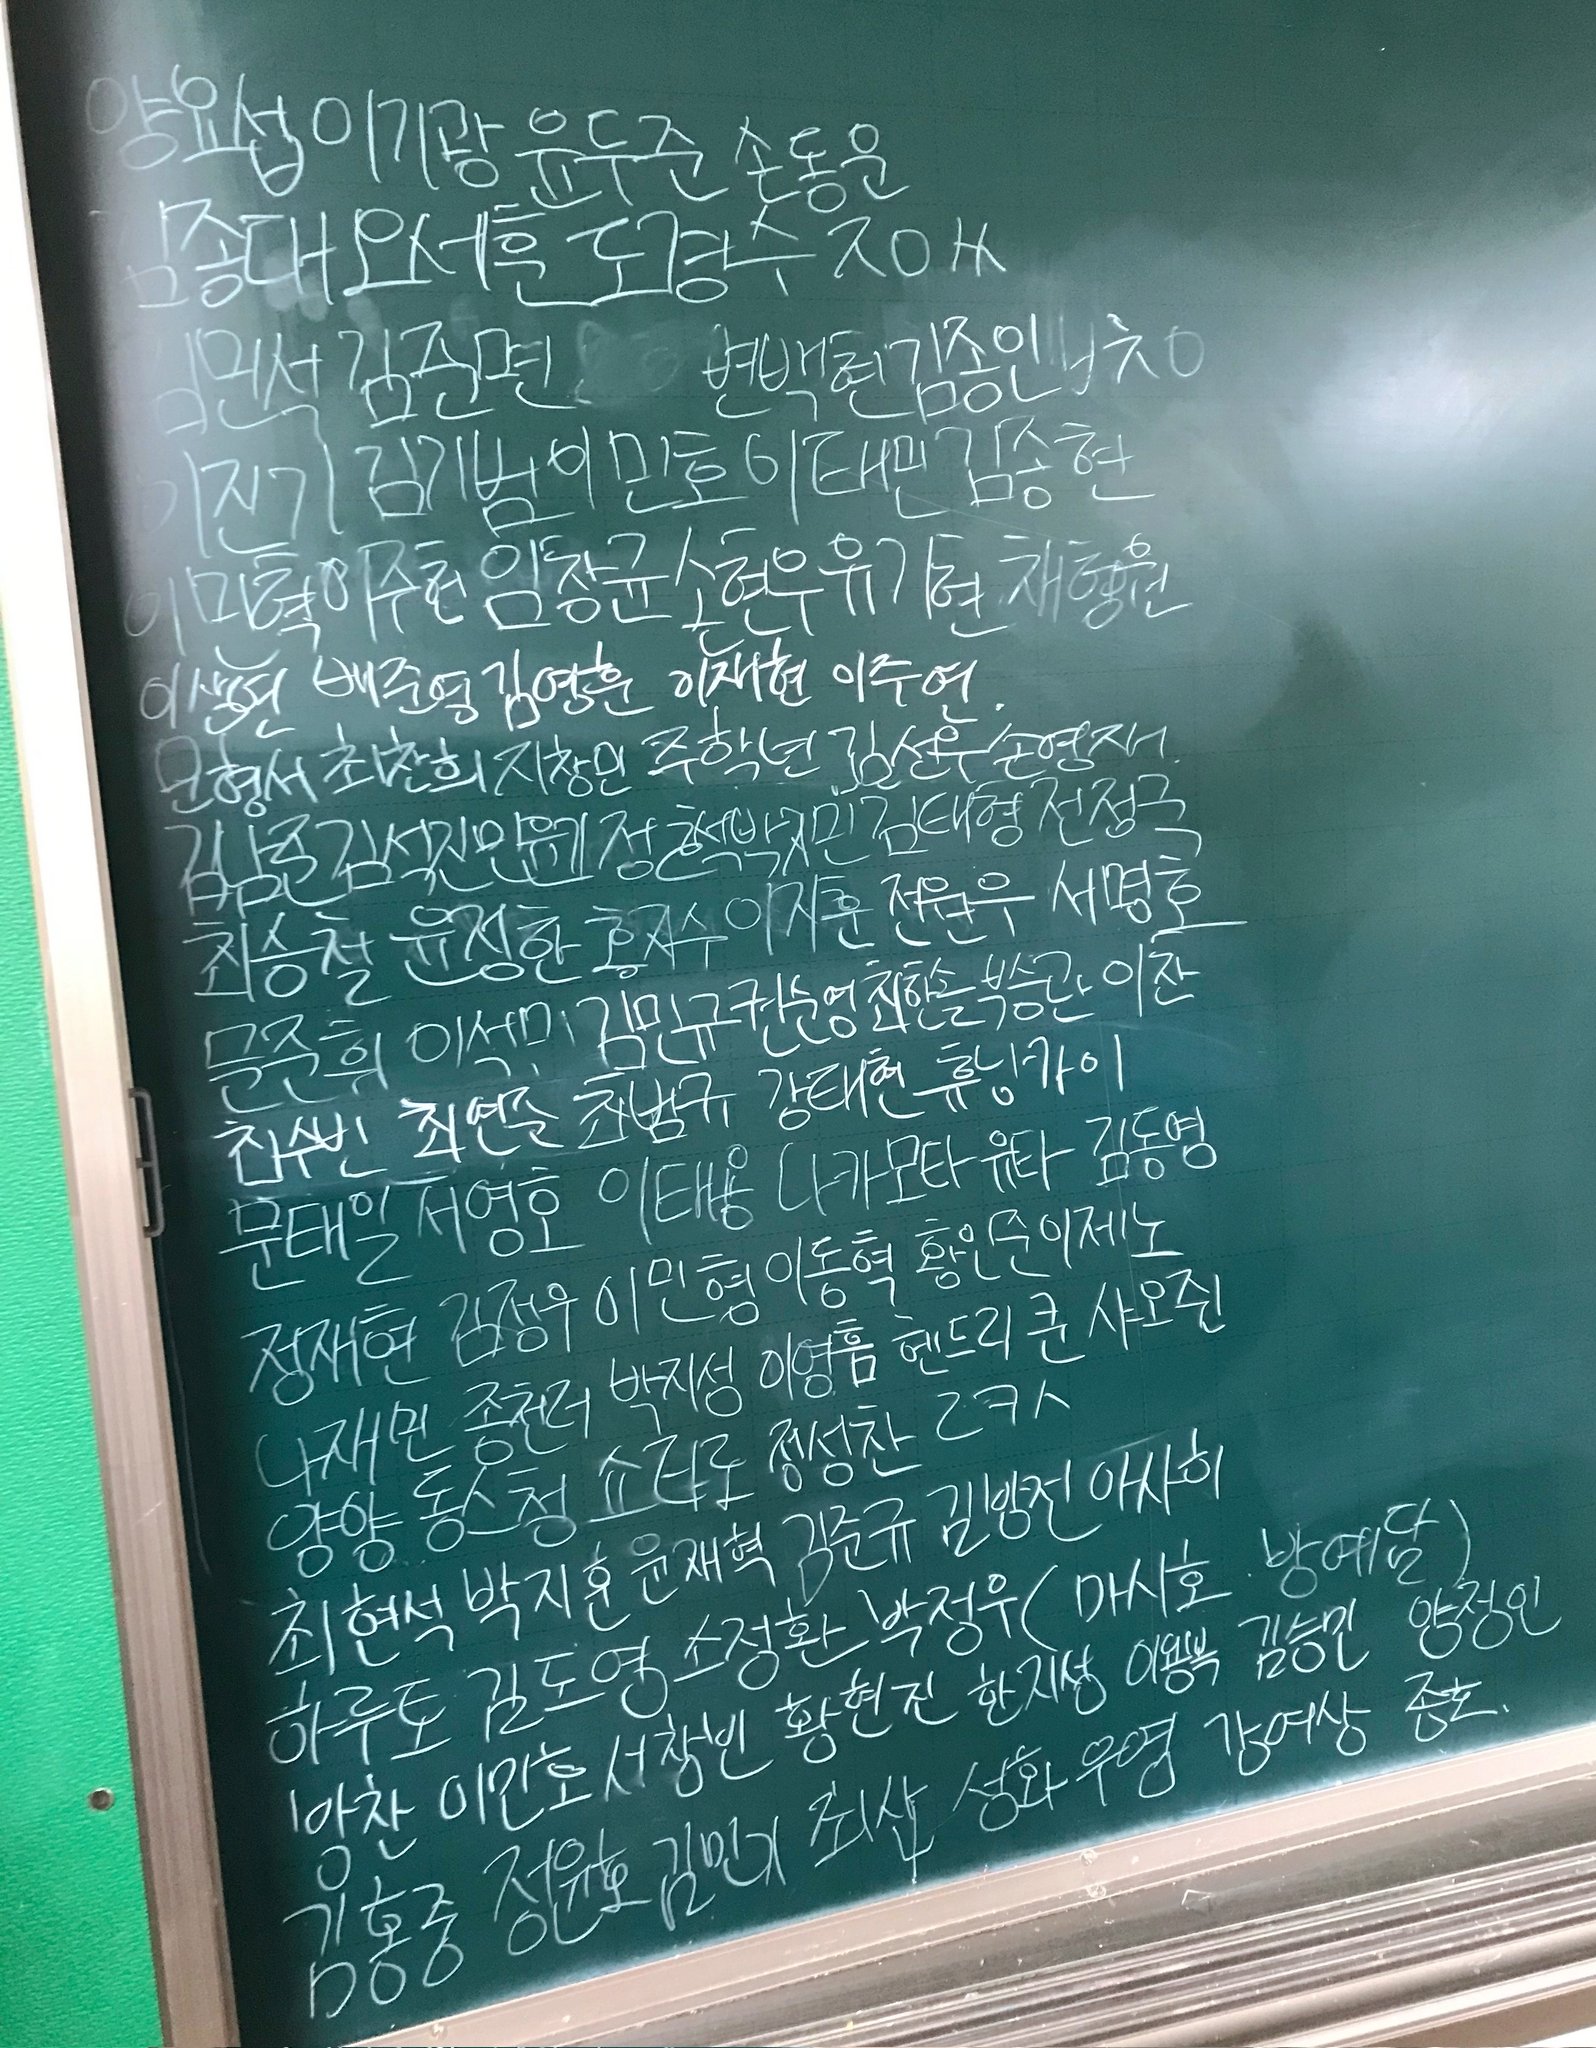 양요섭 이기광 윤두준 손동운
김종대 오세훈 도경수 ㅈㅇㅅ
김민석 김준면 변백현 김종인 ㅂㅊㅇ
이진기 김기범 이민호 이태민 김종현
이민혁 이주헌 임창균 손현우 유기현 채형원
이상연 배준영 김영훈 이재현 이주연.
문형서 최찬희 지창민 주학년 김선우 손영재.
김남준 김석진 민윤기 정호석 박지민 김태형 전정국
최승철 윤정한 홍지수 이지훈 전원우 서명호
문준휘 이석민 김민규 권순영 최한솔 부승관 이찬
최수빈 최연준 최범규 강태현 휴닝카이
문태일 서영호 이태용 나카모타 유타 김동영
정재현 김정우 이민형 이동혁 황인준 이제노
나재민 종천러 박지성 이영흠 헨드리 쿤 샤오쥔
양양 동스청 쇼타로 정성찬 ㄹㅋㅅ
최현석 박지훈 윤재혁 김준규 김방전 아사히
하루토 김도영 소정환 박정우 (마시호 방예담)
방찬 이민호 서창빈 황현진 한지성 이용복 김승민 양정인
김홍중 정윤호 김민기 최산 성화 우영 강여상 종호.